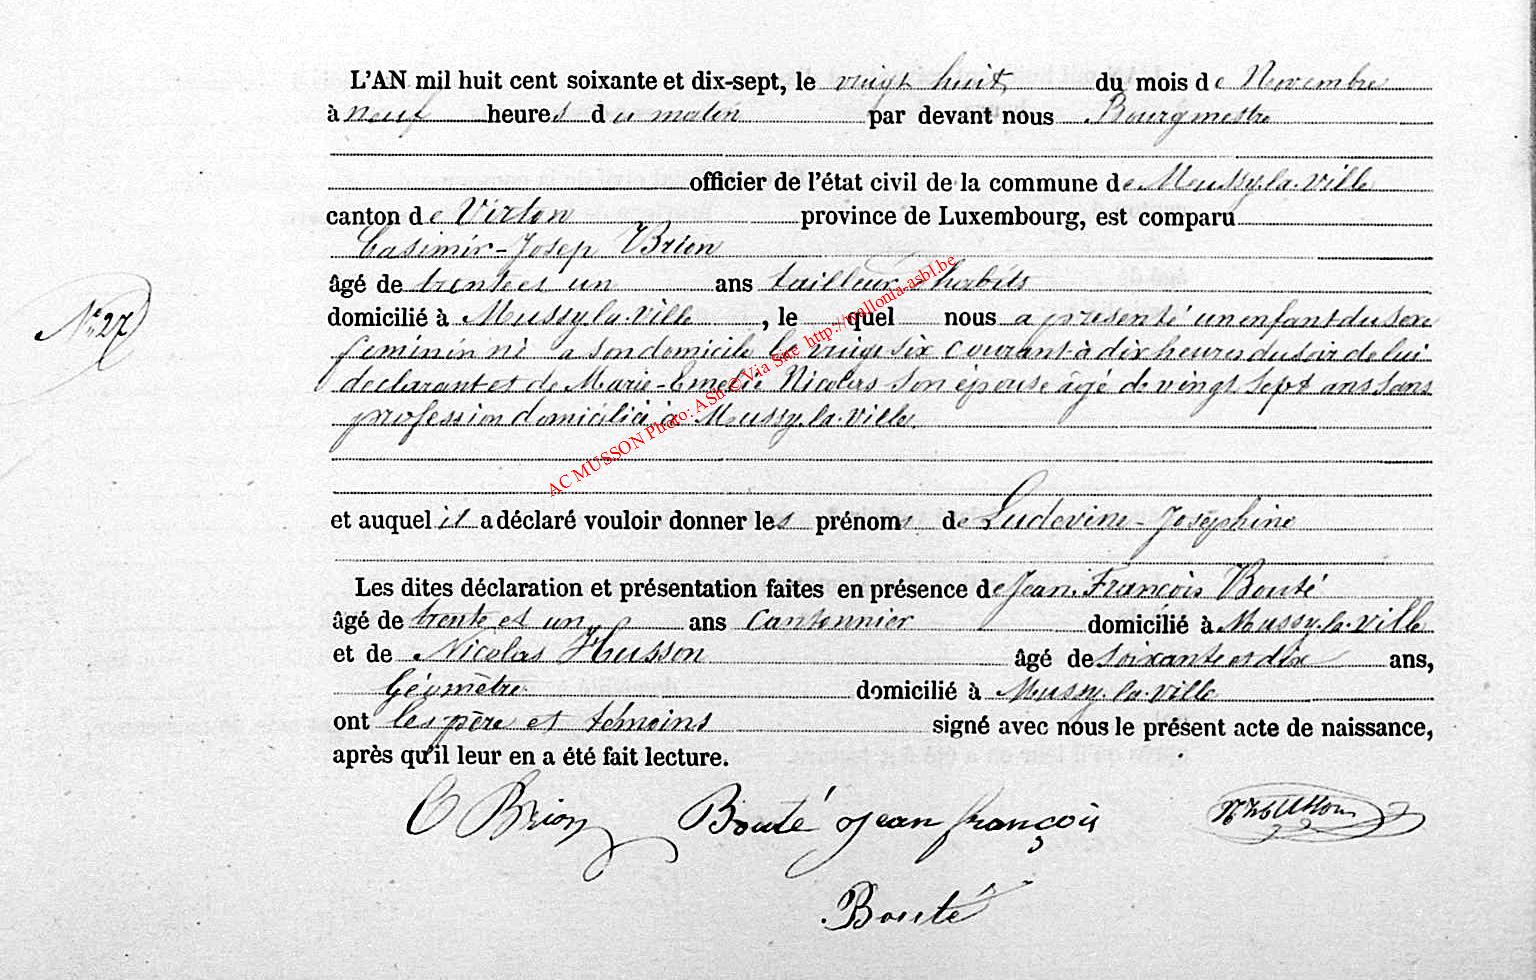 L'AN mil huit cent soixante et dix-sept, le vingt huit du mois de Novembre
à neuf heures du matin par devant nous Bourgmestre
officier de l'état civil de la commune de Mussy-la-Ville
canton de Virton province de Luxembourg, est comparu
Casimir-Josep Brion
âgé de trente et un ans tailleur d'habits
domicilié à Mussy-la-Ville, le quel nous a présenté un enfant du sexe
N° 27
féminin né a son domicile le vingt six courant à dix heures du soir de lui
declarant et de Marie-Emelie Nicolas son épouse âgé de vingt sept ans sans
profession domicilié à Mussy-la-Ville.
et auquel il a déclaré vouloir donner les prénoms de Ludovine-Joséphine
Les dites déclaration et présentation faites en présence de Jean François Bouté
âgé de trente et un ans Cantonnier domicilié à Mussy-la-Ville
et de Nicolas Husson âgé de soixante et dix ans,
Géomètre domicilié à Mussy-la-Ville
ont les père et témoins signé avec nous le présent acte de naissance,
après qu'il leur en a été fait lecture.
C Brion Bouté Jean françois N Husson
Bouté
AC MUSSON Photo: ASh © Via Site http://wallonia-asbl.be